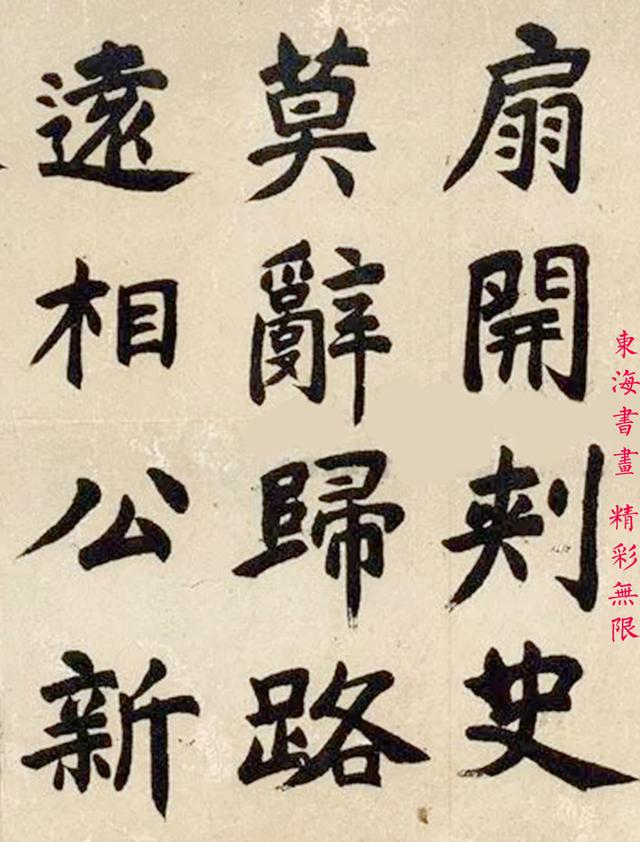 扇開刾史
莫辭歸路
遠相公新
東海書畫 精彩無限